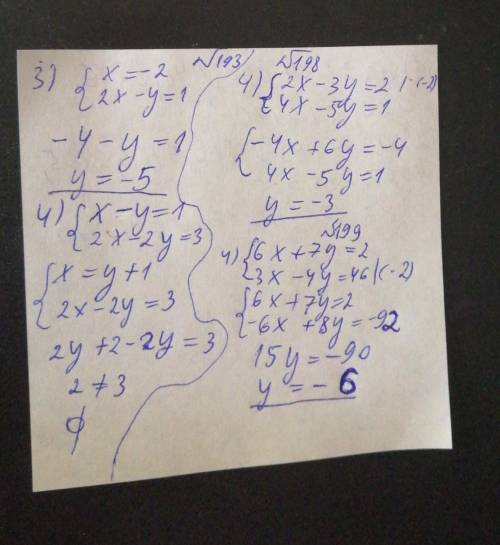 №193
3) { x = -2
2x - y = 1
-4 - y = 1
y = -5
4) { x - y = 1
2x - 2y = 3
{ x = y + 1
2x - 2y = 3
2y + 2 - 2y = 3
2 ≠ 3
∅
№198
4) { 2x - 3y = 2 | ·(-2)
4x - 5y = 1
{ -4x + 6y = -4
4x - 5y = 1
y = -3
№199
4) { 6x + 7y = 2
3x - 4y = 46 | (-2)
{ 6x + 7y = 2
-6x + 8y = -92
15y = -90
y = -6